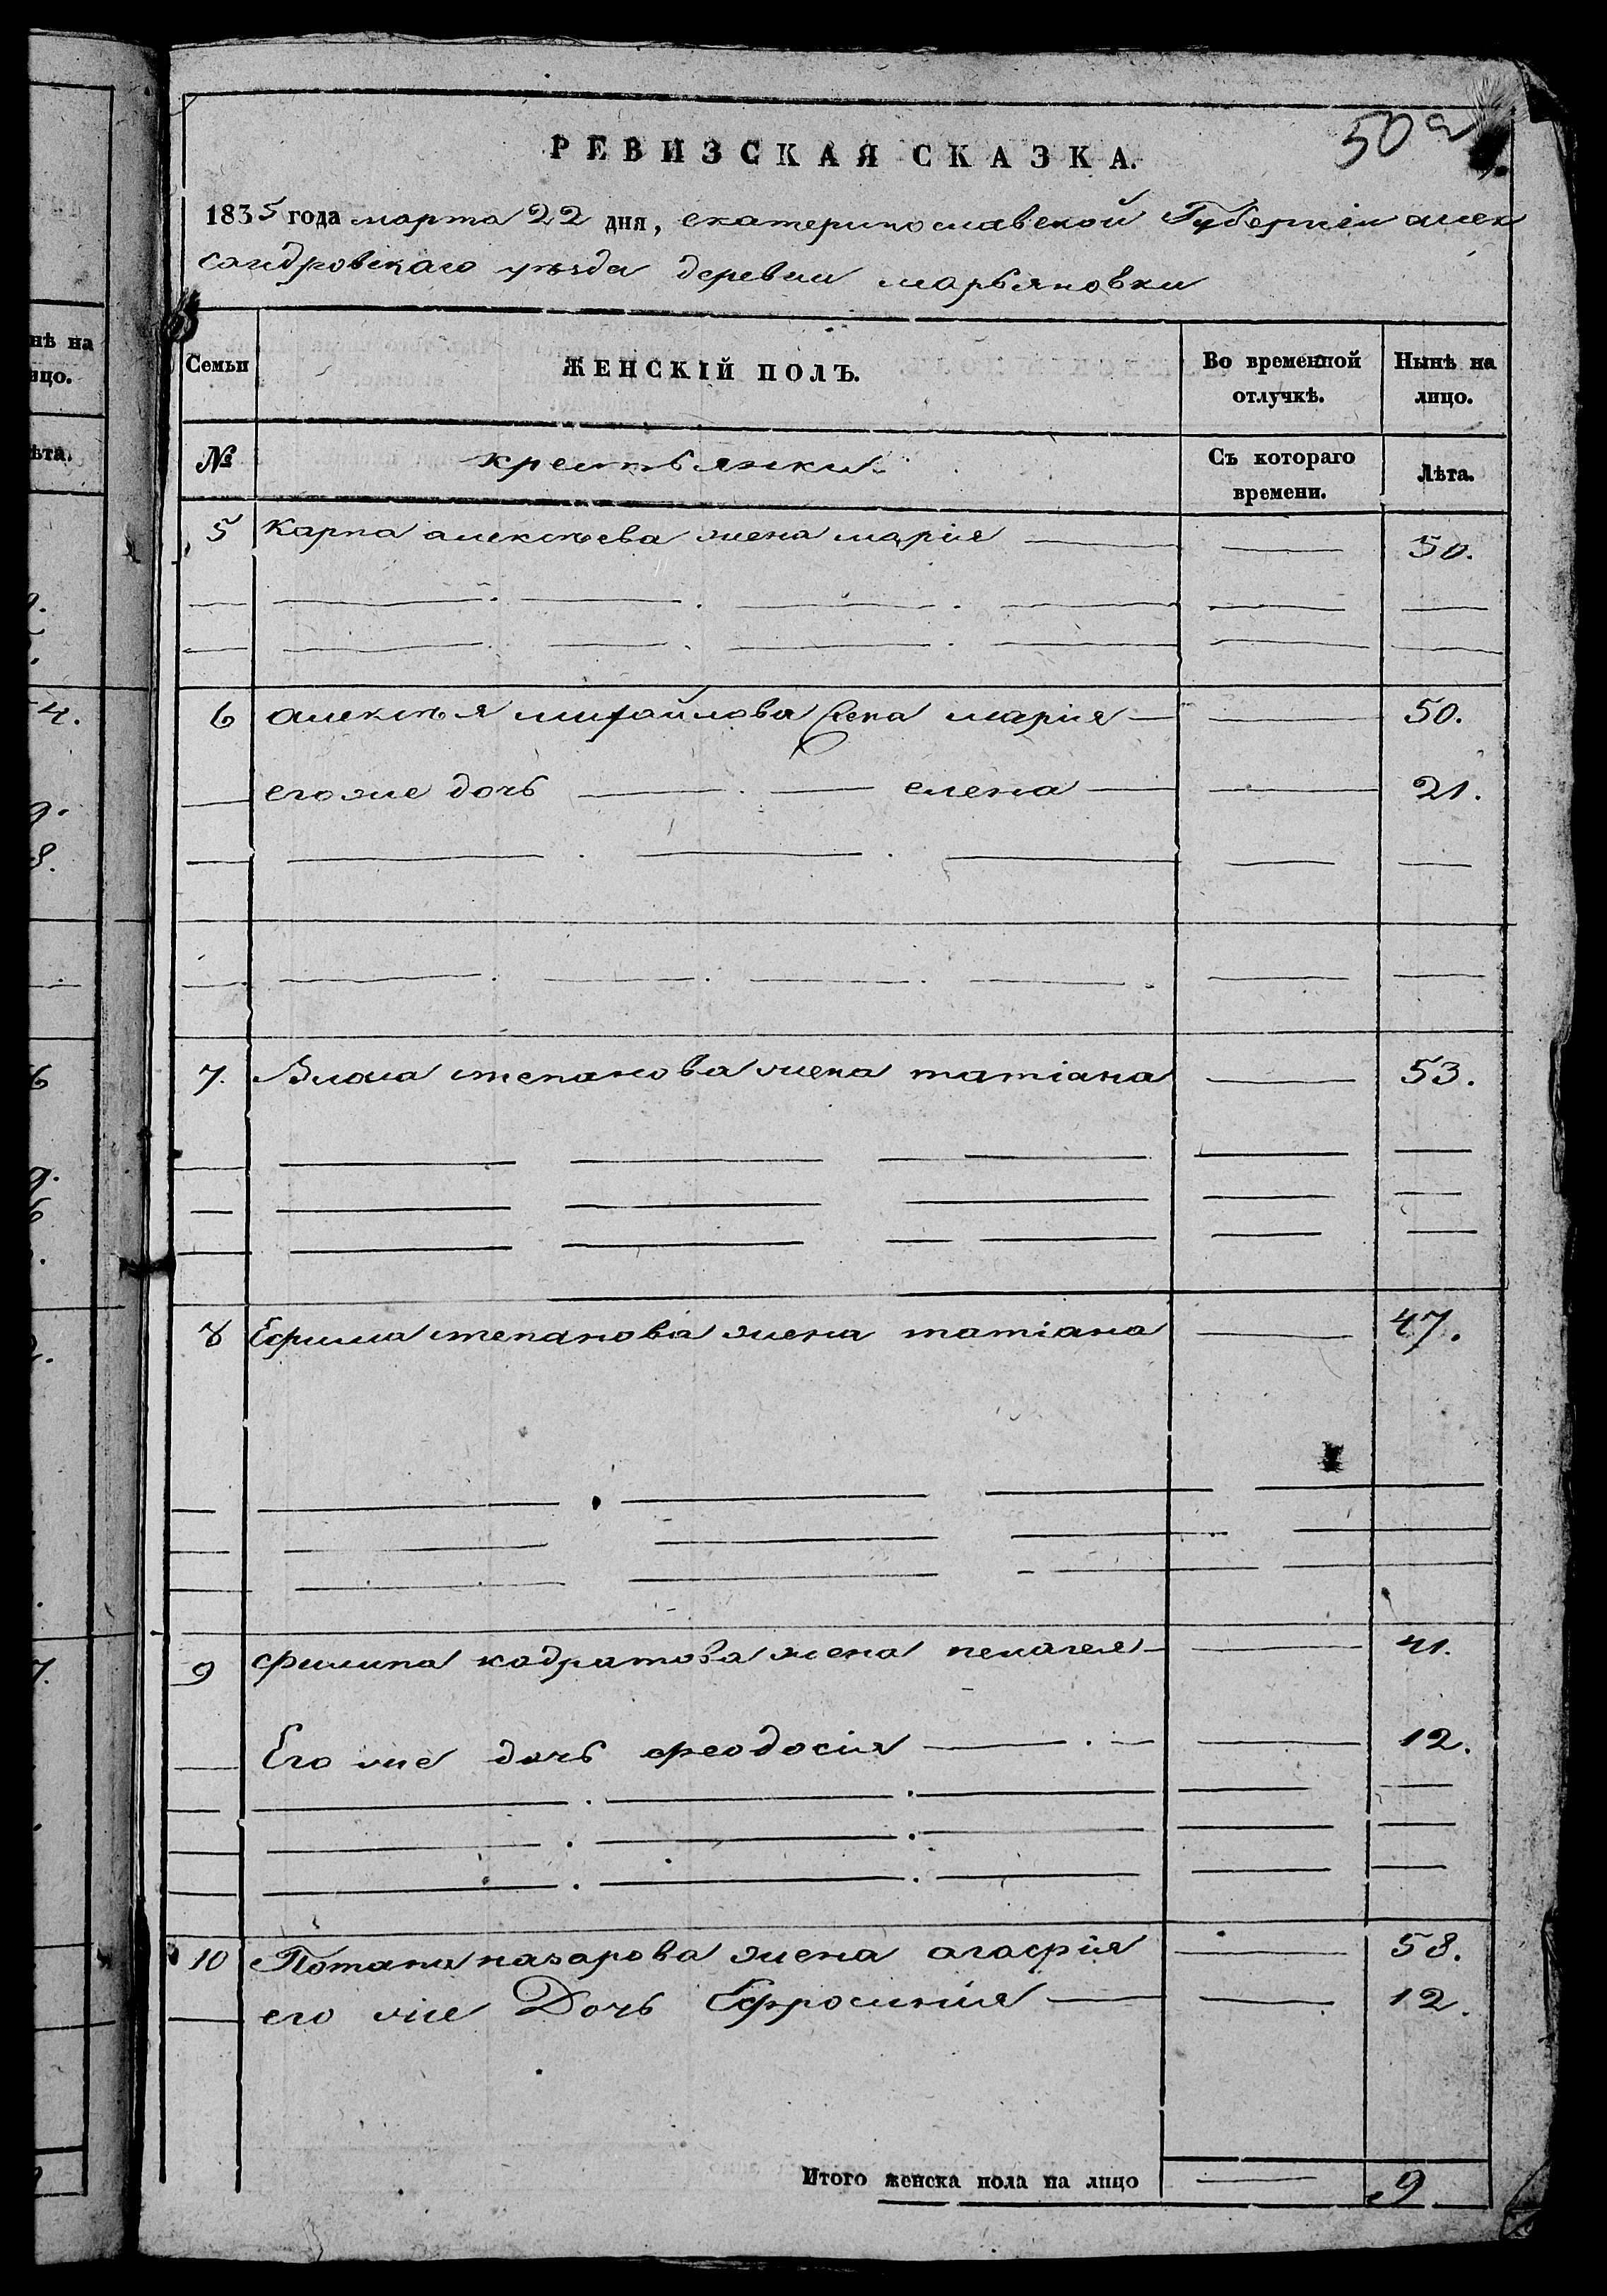 50а
РЕВИЗСКАЯ СКАЗКА.
1835 года марта 22 дня, екатеринославской Губерніи алек
сандровскаго уѣзда деревни марьяновки
нѣ на
ицо.
Семьи
ЖЕНСКІЙ ПОЛЪ.
Во временной отлучкѣ.
Нынѣ на лицо.
ѣта.
№
крестьянки
Съ котораго времени.
Лѣта.
5 Карпа алексѣева жена марія 50.
6 алексѣя михайлова жена марія 50.
его же дочь елена 21.
7. Власа степанова жена татіана 53.
8 Ефима степанова жена татіана 47.
9 филипа кадратова жена пелагея 41.
Его же дочь феодосія 12.
10 Потапа назарова жена агафія 58.
его же Дочь Ефросинія 12.
Итого женска пола на лицо 9